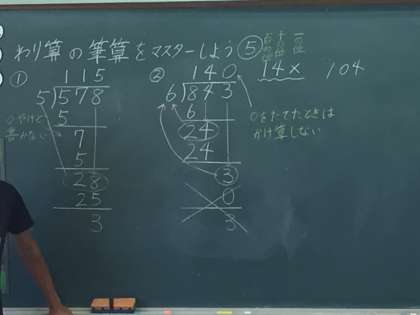 わり算の筆算をマスターしよう
①
115
5)578
5
7
5
28
25
3
0
書かない
②
140
6)843
6
24
24
3
0
3
0をたてたときは
かけ算しない
⑤
百 十 一
の 位 位
位
14×
104